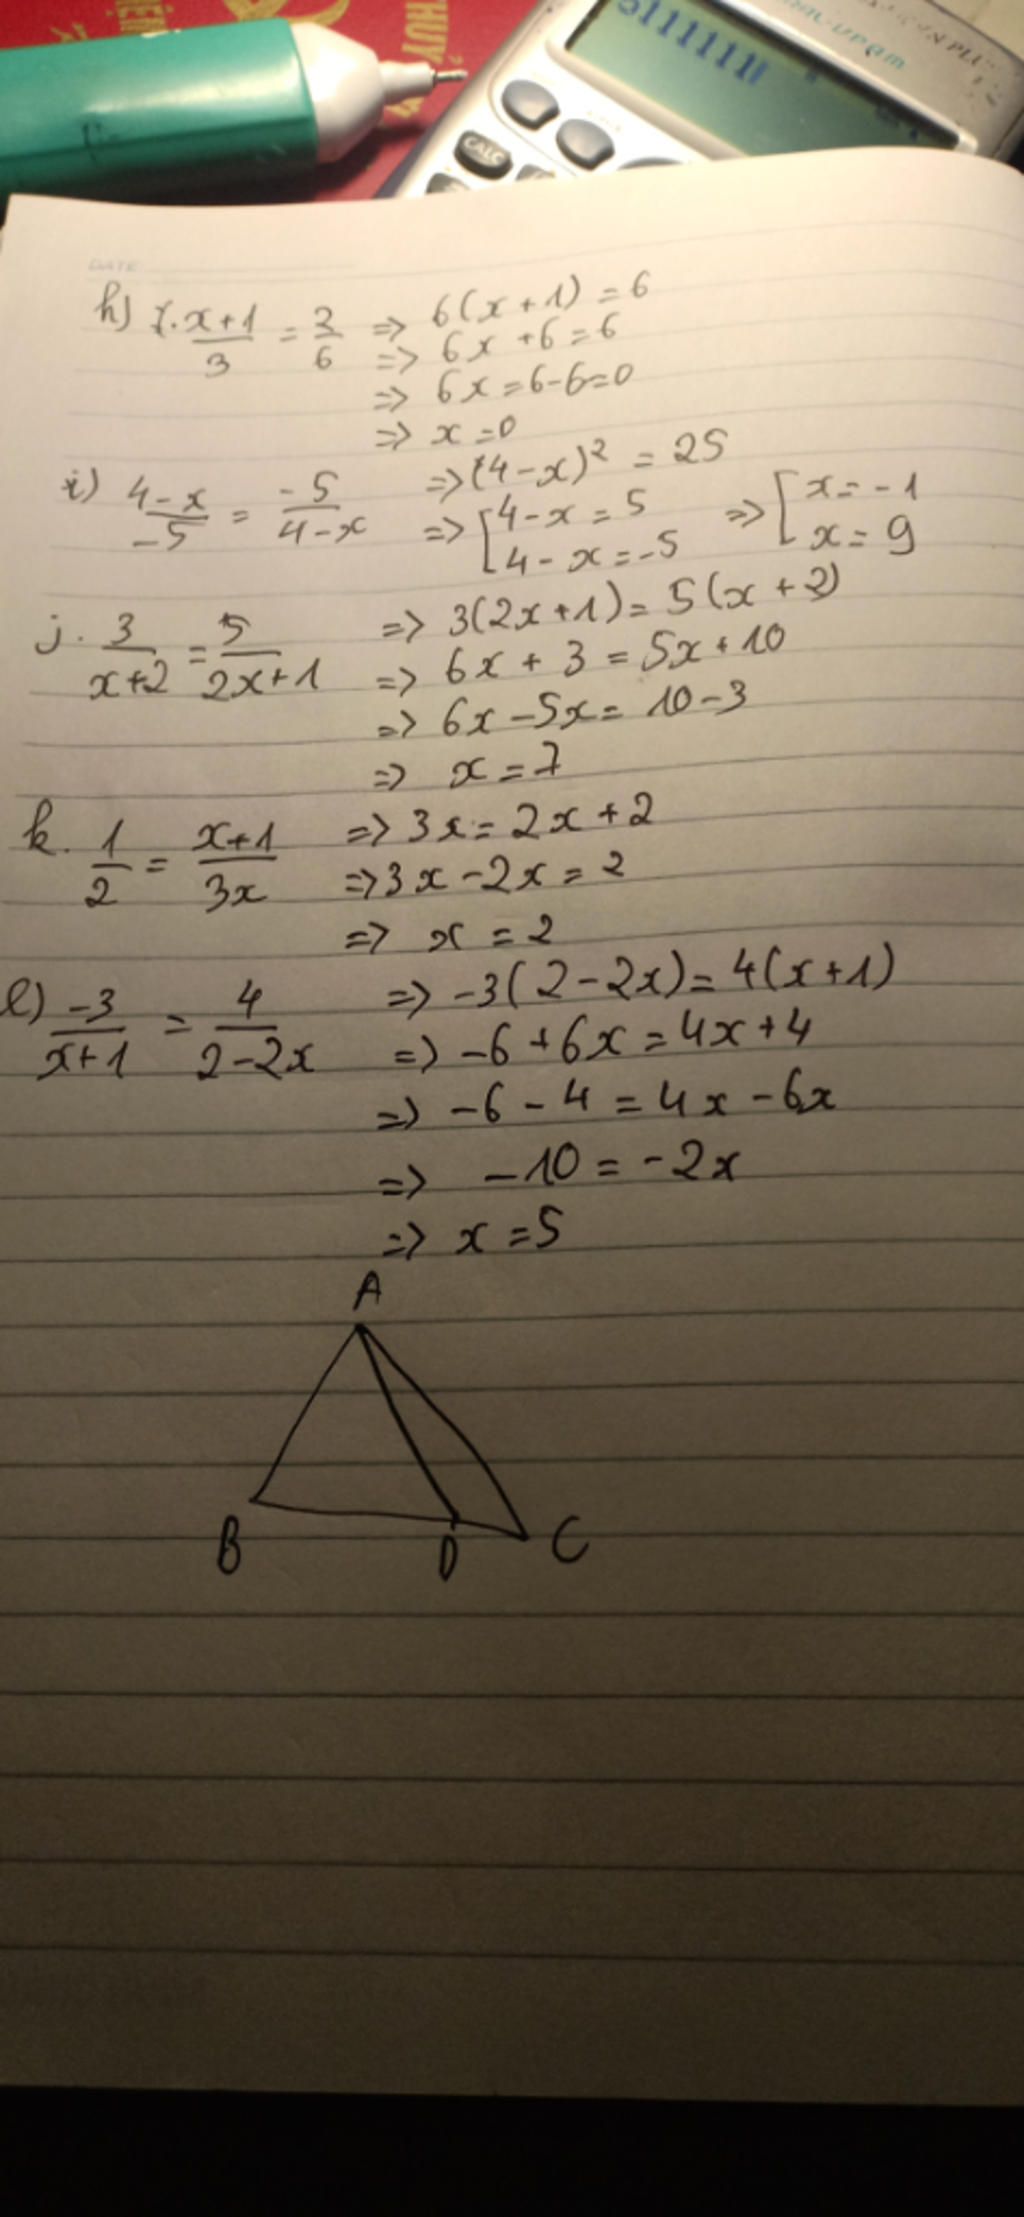 THUỶ
CALC
DATE
h) x+1/3 = 2/6 => 6(x+1) = 6
=> 6x+6=6
=> 6x=6-6=0
=> x=0
i) 4-x/-5 = -5/4-x => (4-x)² = 25
=> [4-x=5 => [x=-1
4-x=-5 x=9
j. 3/x+2 = 5/2x+1 => 3(2x+1)=5(x+2)
=> 6x+3=5x+10
=> 6x-5x=10-3
=> x=7
k. 1/2 = x+1/3x => 3x=2x+2
=> 3x-2x=2
=> x=2
l) -3/x+1 = 4/2-2x => -3(2-2x)=4(x+1)
=> -6+6x=4x+4
=> -6-4=4x-6x
=> -10=-2x
=> x=5
A
B D C